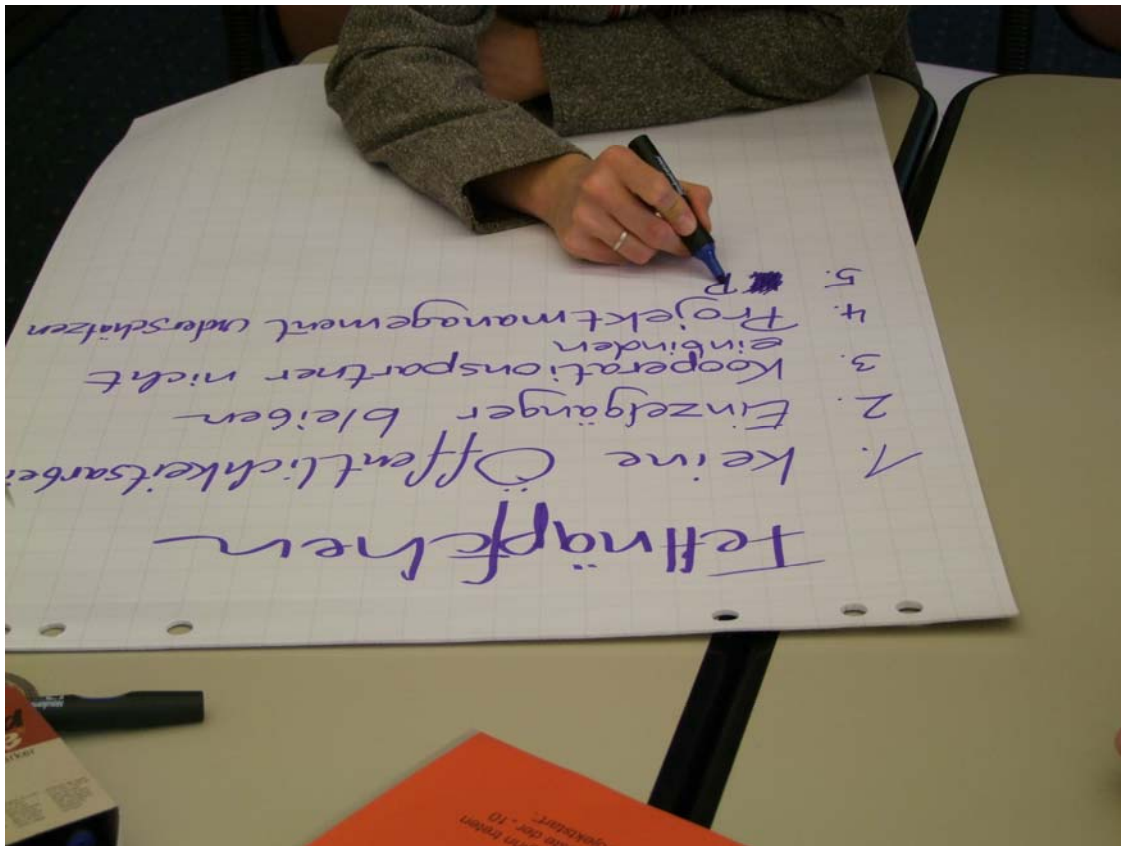 Fettnäpfchen
1. keine Öffentlichkeitsarbei
2. Einzelgänger bleiben
3. Kooperationspartner nicht
einbinden
4. Projektmanagement unterschätzen
5. P
rin treten
der „10
ojektstart“.
arker